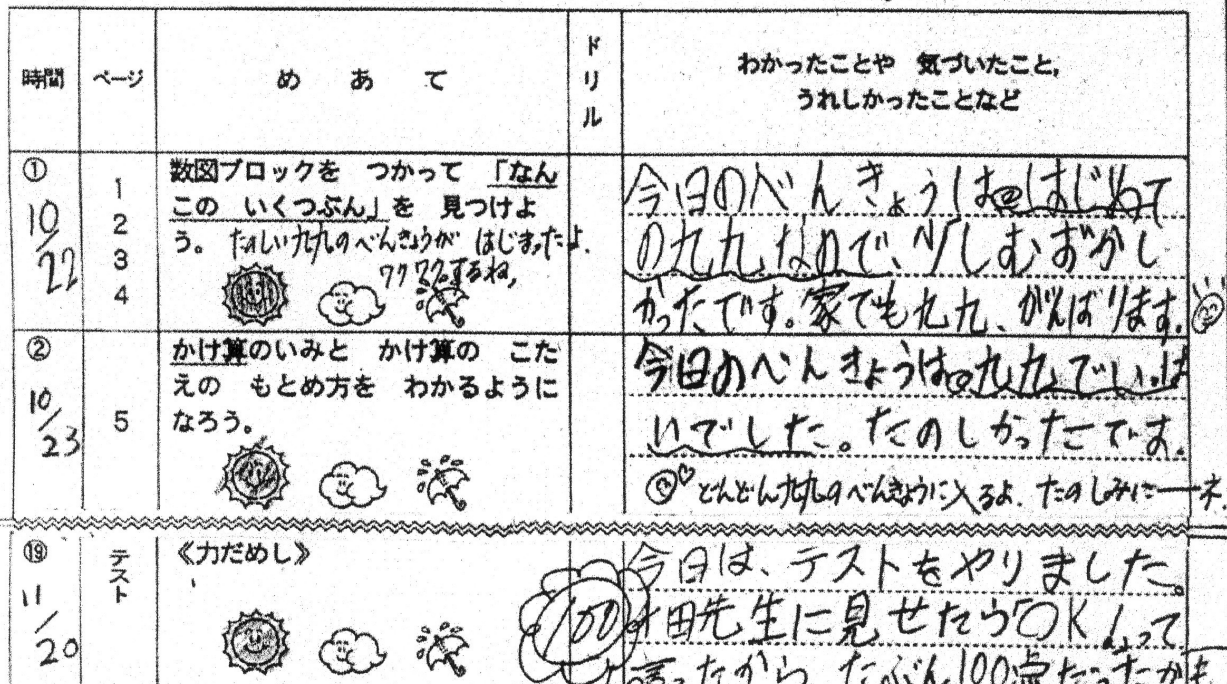 時間 ページ めあて ドリル わかったことや 気づいたこと,
うれしかったことなど
①
10/22
1
2
3
4
数図ブロックを つかって 「なん
この いくつぶん」を 見つけよ
う。 たのしい九九のべんきょうが はじまったよ.
ワクワクするね,
今日のべんきょうは、はじめて
の九九なので、少しむずかし
かったです。家でも九九、がんばります。
②
10/23
5
かけ算のいみと かけ算の こた
えの もとめ方を わかるように
なろう。
今日のべんきょうは、九九でいっぱ
いでした。たのしかったです。
どんどん九九のべんきょうに入るよ. たのしみにーネ.
⑲
11/20
テスト
《力だめし》
100
今日は、テストをやりました。
田先生に見せたらOK!って
言ったから、たぶん100点だったかも